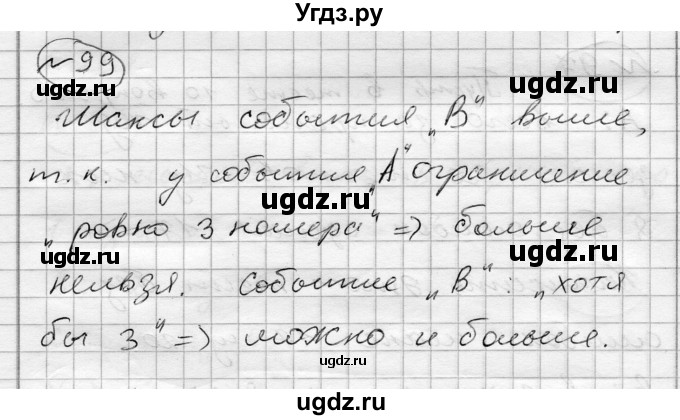 Угдз.ру
№99
ugdz.ru
ugdz.ru
Шансы события „В" выше,
ugdz.ru
т.к. у события „А" ограничение
ugdz.ru
„ровно 3 номера" => больше
ugdz.ru
ugdz.ru
нельзя. Событие „В": „хотя
бы 3" => можно и больше.
ugdz.ru
ugdz.ru
Угдз.ру